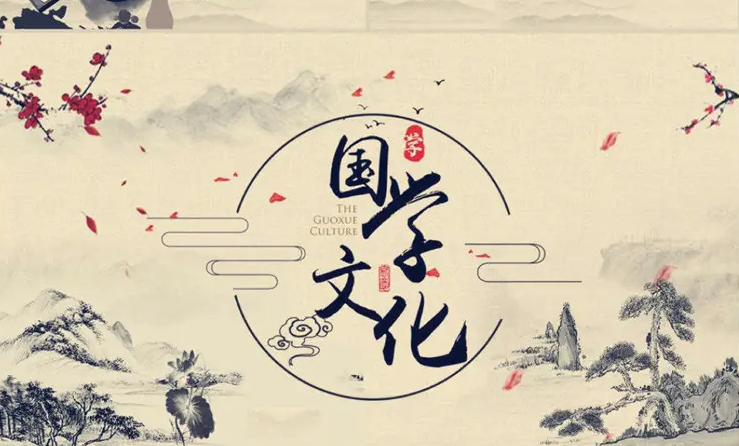 国学
学
THE
GUOXUE
CULTURE
文化